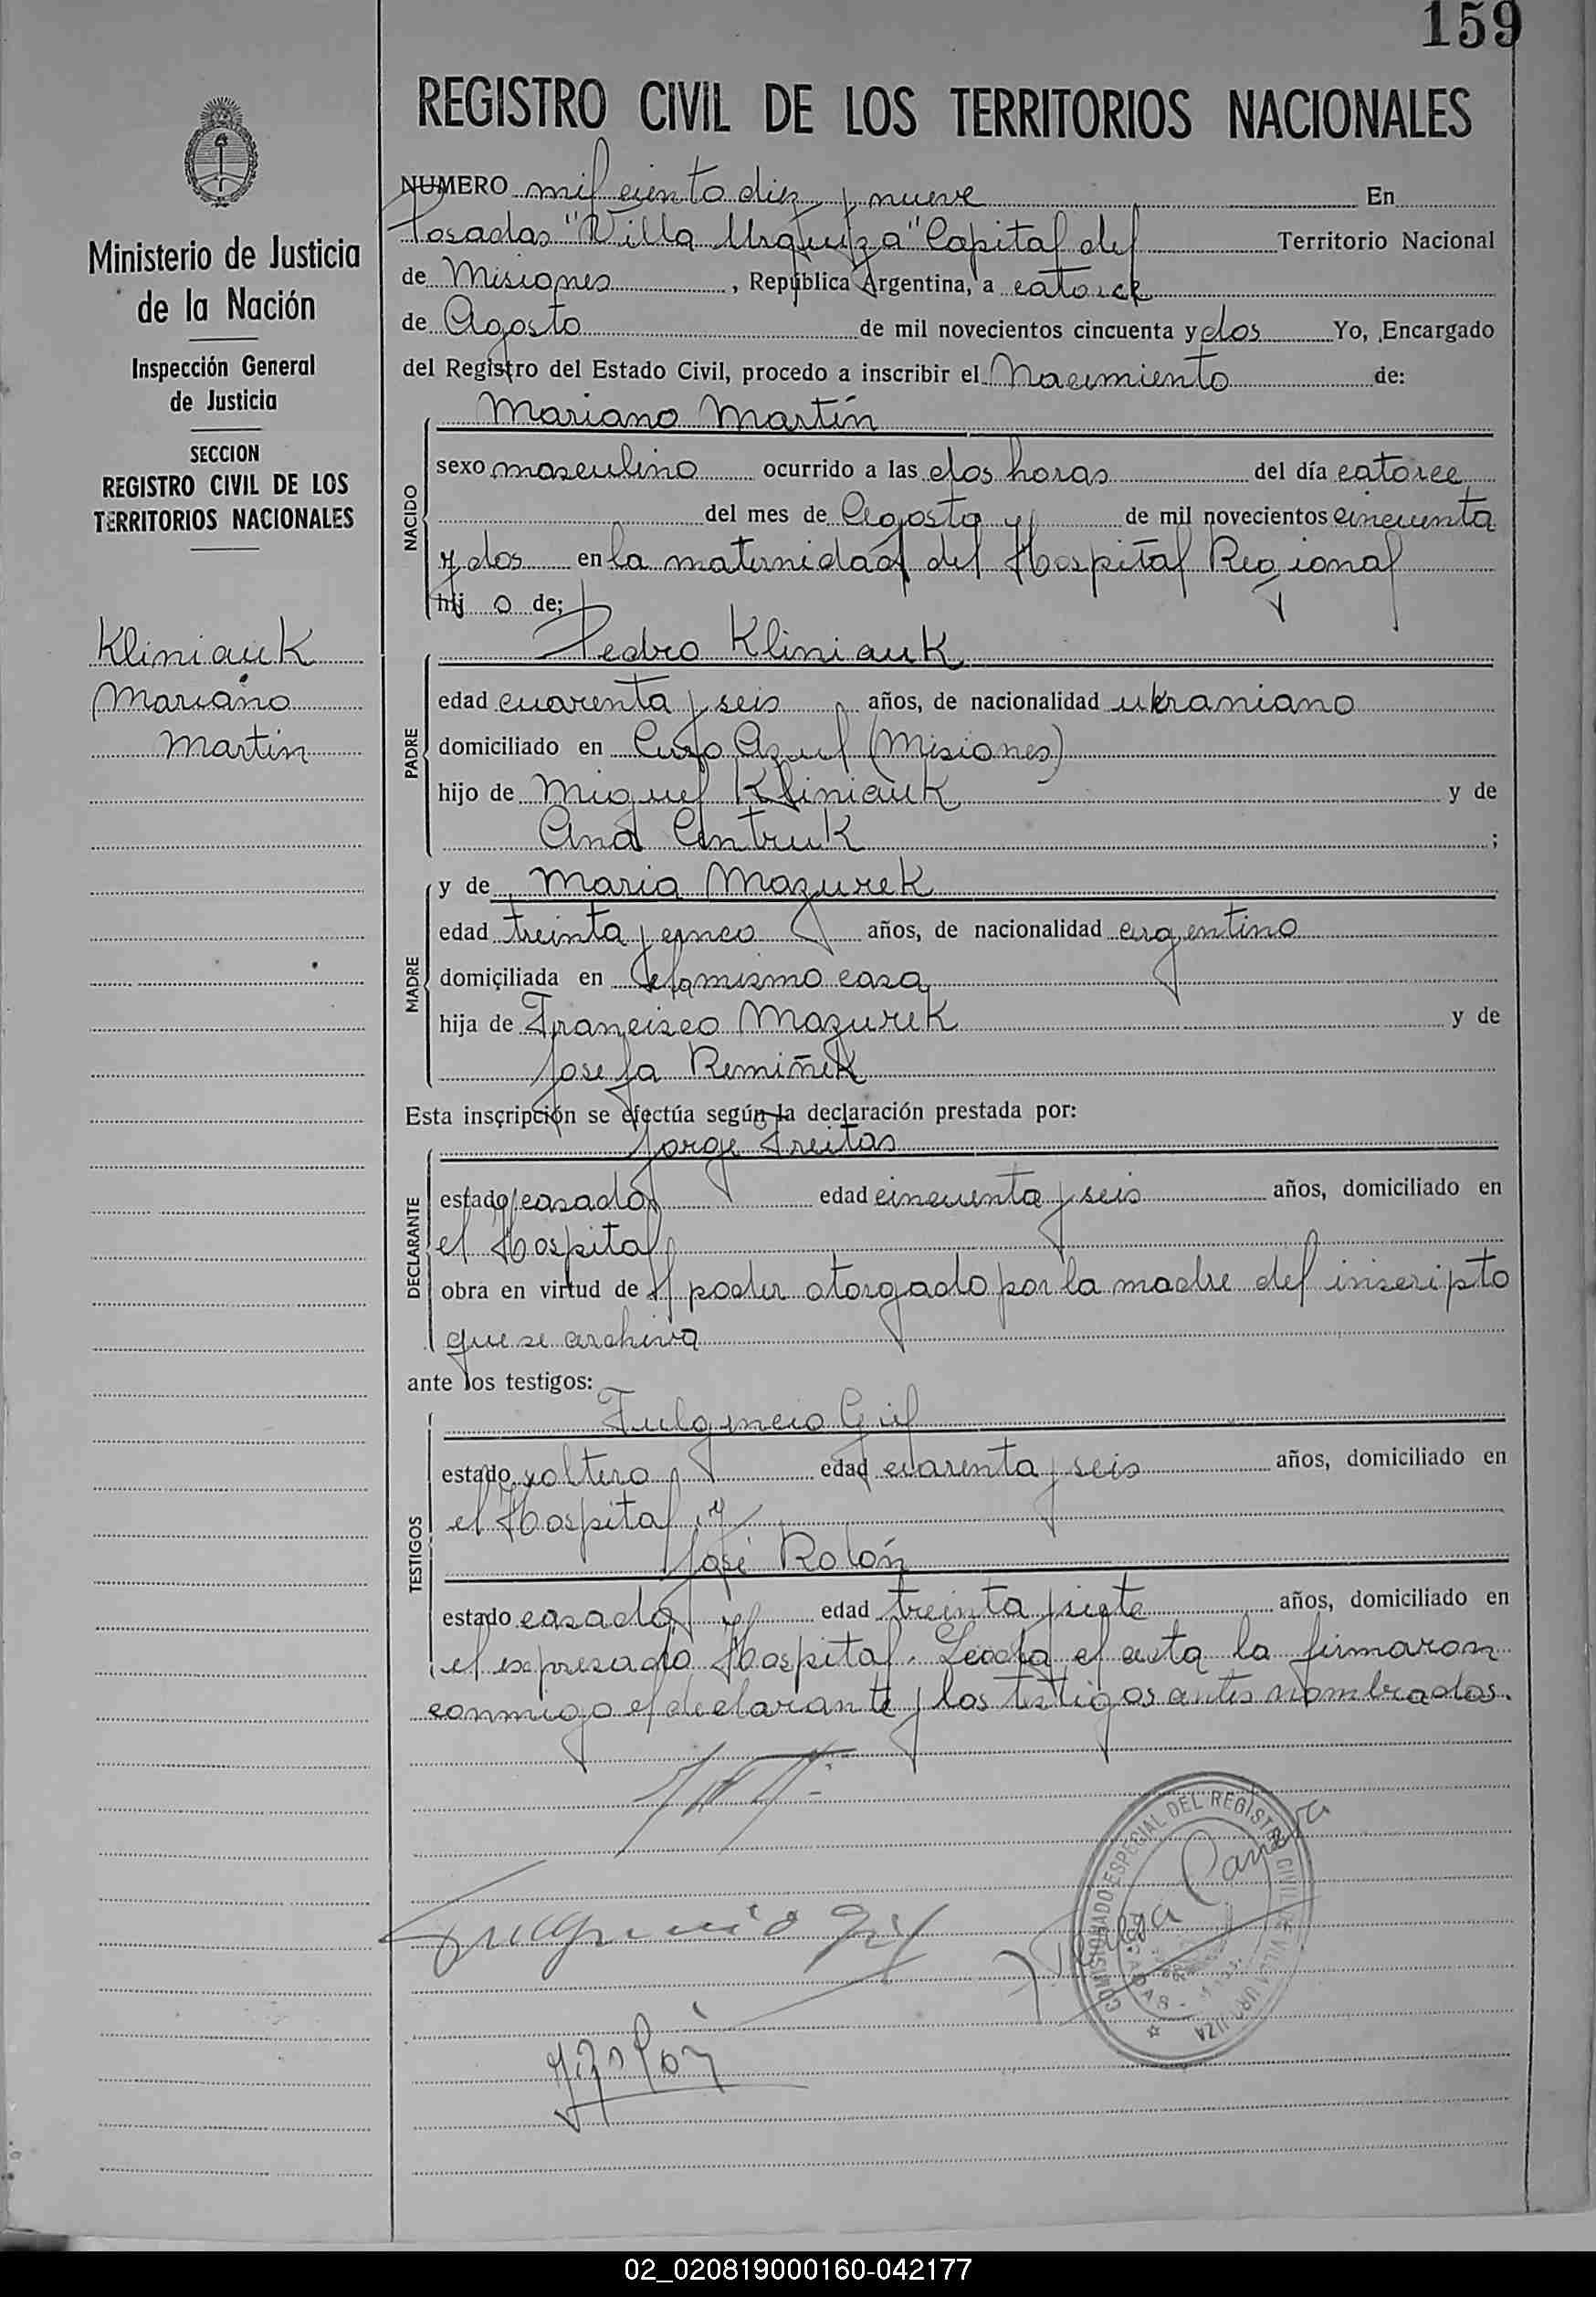 159
REGISTRO CIVIL DE LOS TERRITORIOS NACIONALES
Ministerio de Justicia
de la Nación
Inspección General
de Justicia
SECCION
REGISTRO CIVIL DE LOS
TERRITORIOS NACIONALES
Kliniauk
Mariano
Martín
NUMERO mil ciento diez y nueve En
Posadas "Villa Urquiza" Capital del Territorio Nacional
de Misiones, República Argentina, a catorce
de Agosto de mil novecientos cincuenta y dos Yo, Encargado
del Registro del Estado Civil, procedo a inscribir el Nacimiento de:
NACIDO
Mariano Martín
sexo masculino ocurrido a las dos horas del día catorce
del mes de Agosto y de mil novecientos cincuenta
y dos en la maternidad del Hospital Regional
hij o de:
PADRE
Pedro Kliniauk
edad cuarenta y seis años, de nacionalidad ukraniano
domiciliado en Curso Azul (Misiones)
hijo de Miguel Kliniauk y de
Ana Antruk ;
MADRE
y de Maria Mazurek
edad treinta y cinco años, de nacionalidad argentino
domiciliada en la mismo casa
hija de Francisco Mazurek y de
Josefa Remiñek
Esta inscripción se efectúa según la declaración prestada por:
DECLARANTE
Jorge Freitas
estado casado edad cincuenta y seis años, domiciliado en
el Hospital
obra en virtud de el poder otorgado por la madre del inscripto
que se archiva
ante los testigos:
TESTIGOS
Fulgencio Gil
estado soltero edad cuarenta y seis años, domiciliado en
el Hospital y
José Rolón
estado casado edad treinta y siete años, domiciliado en
el expresado Hospital. Leida el acta la firmaron
conmigo el declarante y los testigos antes nombrados.
Fulgencio Gil
COMISIONADO ESPECIAL DEL REGISTRO CIVIL DE VILLA URQUIZA
POSADAS
J Rolón
02_020819000160-042177